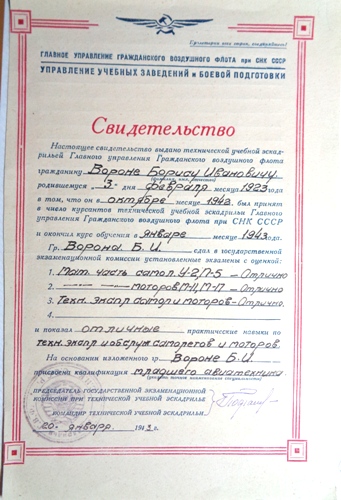 ГЛАВНОЕ УПРАВЛЕНИЕ ГРАЖДАНСКОГО ВОЗДУШНОГО ФЛОТА при СНК СССР
УПРАВЛЕНИЕ УЧЕБНЫХ ЗАВЕДЕНИЙ и БОЕВОЙ ПОДГОТОВКИ
Свидетельство
Настоящее свидетельство выдано технической учебной эскад-
рильей Главного управления Гражданского воздушного флота
гражданину Вороне Борису Ивановичу
(фамилия, имя, отчество)
родившемуся 13 дня февраля месяца 1923 года
в том, что он в октябре месяце 1942 г. был принят
в число курсантов технической учебной эскадрильи Главного
управления Гражданского воздушного флота при СНК СССР
и окончил курс обучения в январе месяце 1943 года.
Гр. Ворона Б. И. сдал в государственной
экзаменационной комиссии установленные экзамены с оценкой:
1. Мат. часть самол. У-2, П-5 – Отлично
2. —„— —„— моторов М-11, М-17 – Отлично
3. Техн. экспл. самол и моторов – Отлично.
4.
и показал отличные практические навыки по
техн. экспл и обслуж. самолетов и моторов.
На основании изложенного гр. Вороне Б. И.
присвоена квалификация младшего авиатехника
ПРЕДСЕДАТЕЛЬ ГОСУДАРСТВЕННОЙ ЭКЗАМЕНАЦИОННОЙ
КОМИССИИ ПРИ ТЕХНИЧЕСКОЙ УЧЕБНОЙ ЭСКАДРИЛЬЕ
КОМАНДИР ТЕХНИЧЕСКОЙ УЧЕБНОЙ ЭСКАДРИЛЬИ
20 январ. 1943 г.